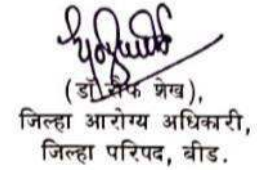 (डॉ. शेख),
जिल्हा आरोग्य अधिकारी,
जिल्हा परिषद, बीड.